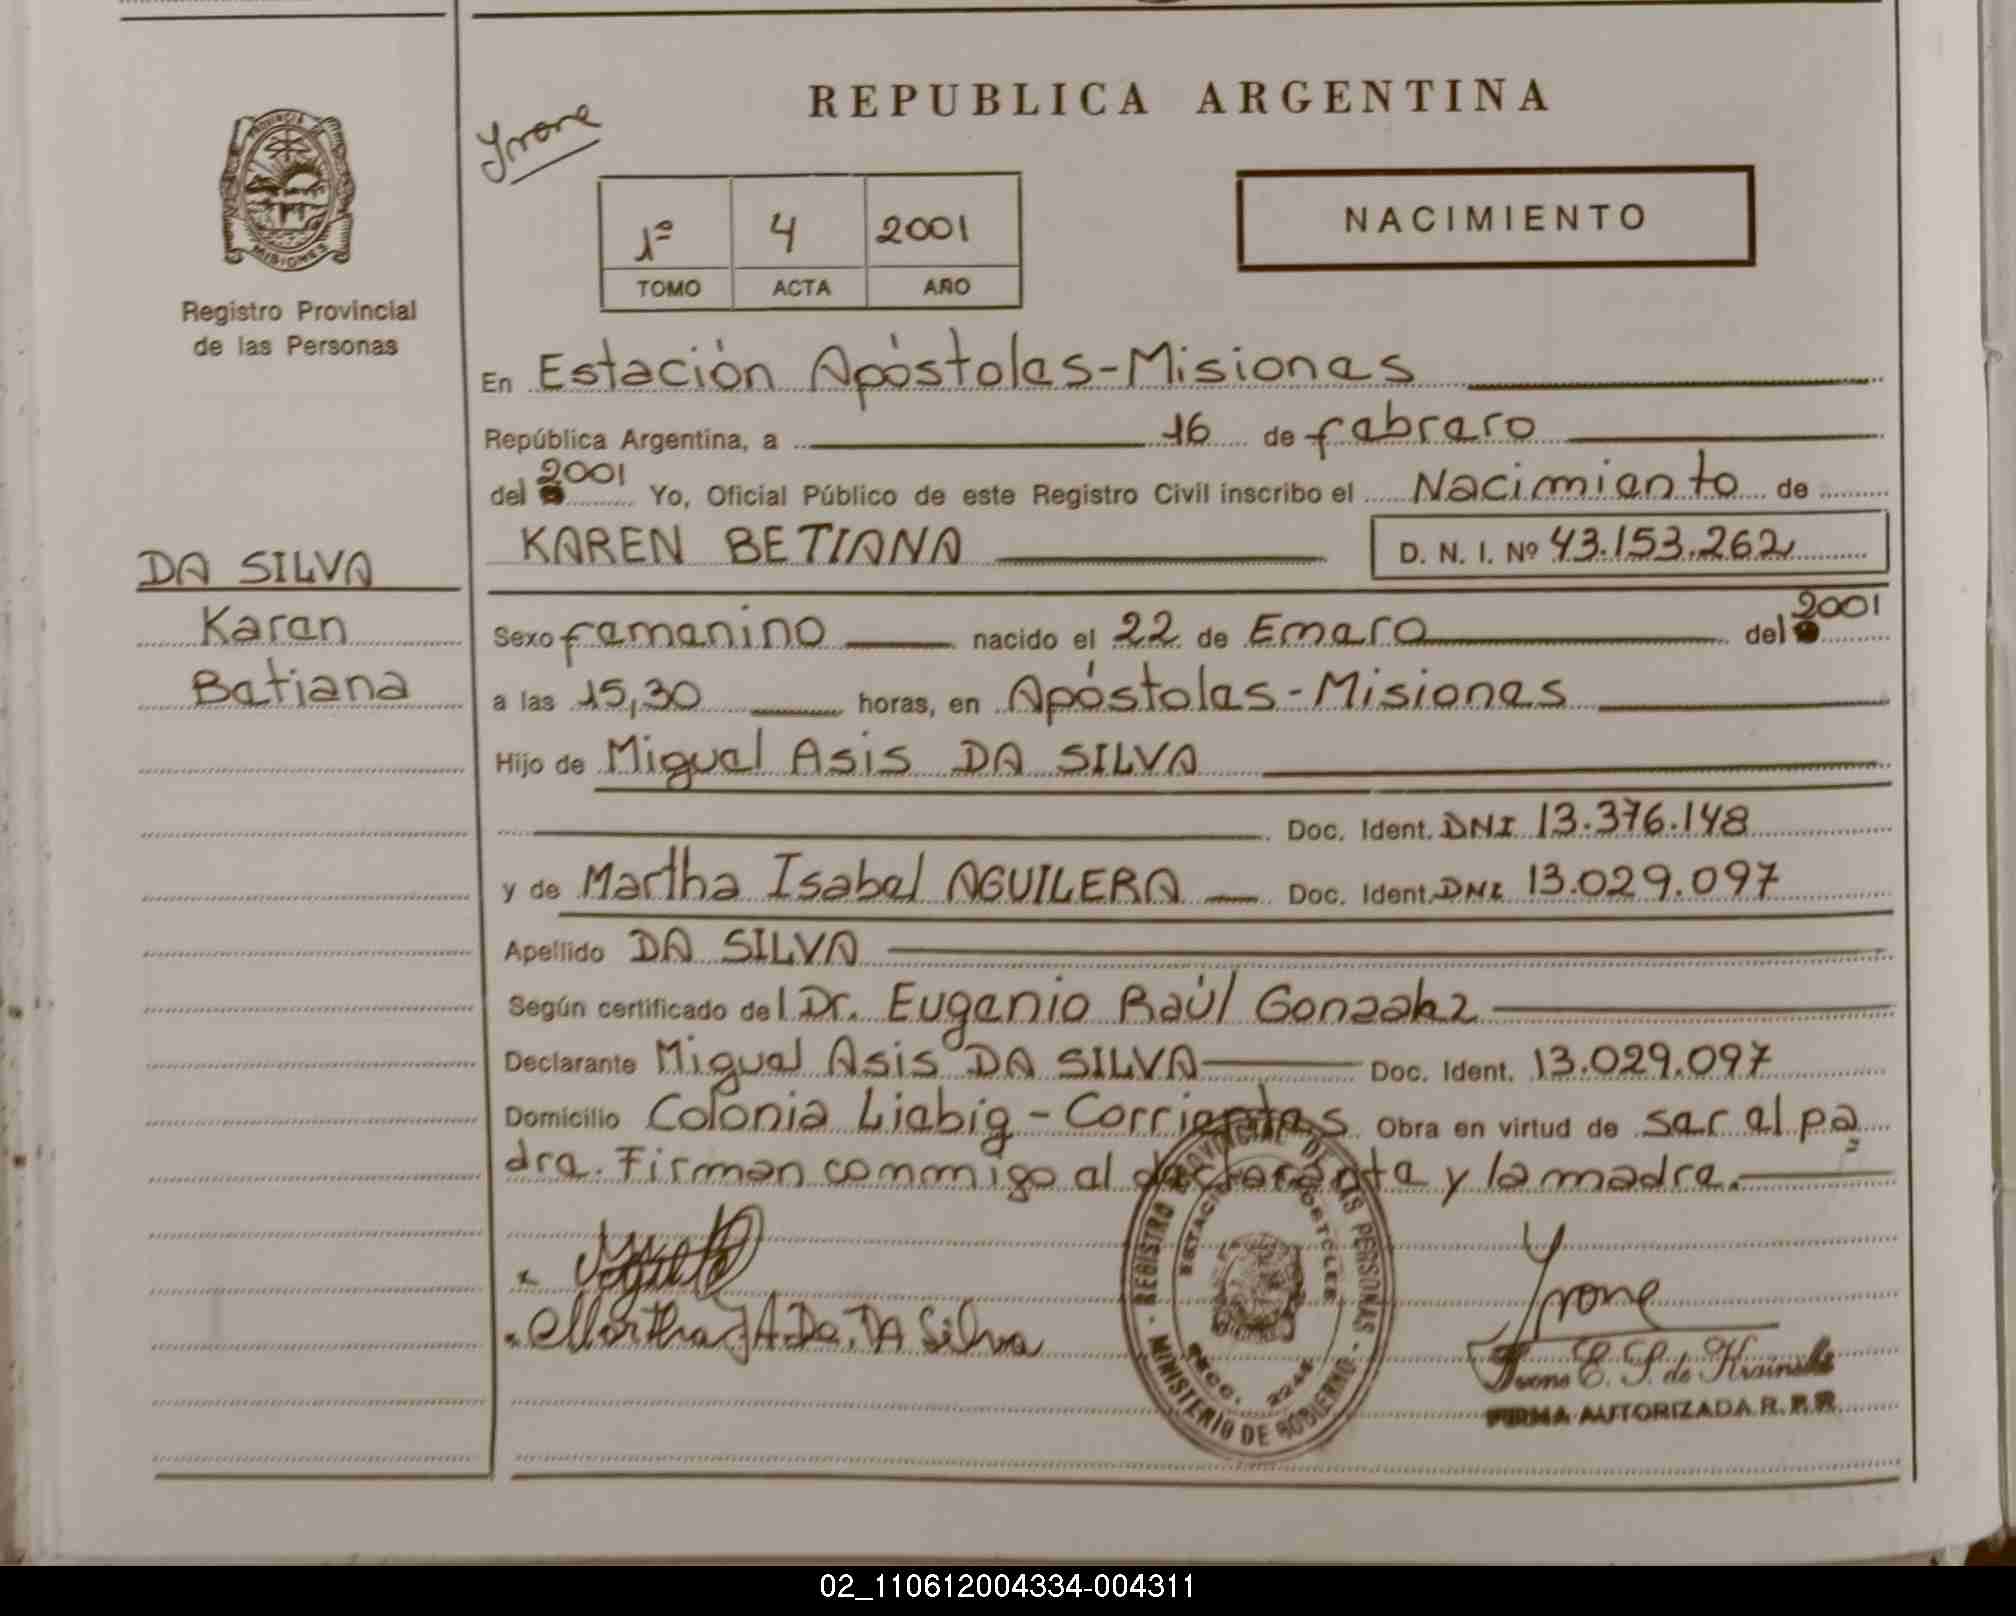 REPUBLICA ARGENTINA
Yvone
1º 4 2001
TOMO ACTA AÑO
NACIMIENTO
PROVINCIA DE MISIONES
Registro Provincial
de las Personas
En Estación Apóstoles-Misiones
República Argentina, a 16 de febrero
del 2001 Yo, Oficial Público de este Registro Civil inscribo el Nacimiento de
KAREN BETIANA D. N. I. Nº 43.153.262
DA SILVA
Karen
Betiana
Sexo femenino nacido el 22 de Enero del 2001
a las 15,30 horas, en Apóstoles-Misiones
Hijo de Miguel Asis DA SILVA
Doc. Ident. DNI 13.376.148
y de Martha Isabel AGUILERA Doc. Ident. DNI 13.029.097
Apellido DA SILVA
Según certificado del Dr. Eugenio Raúl Gonzalez
Declarante Miguel Asis DA SILVA Doc. Ident. 13.029.097
Domicilio Colonia Liebig - Corrientes Obra en virtud de ser el pa
dre. Firman conmigo el declarante y la madre.
Martha I A. De. DA Silva
REGISTRO PROVINCIAL DE LAS PERSONAS - MINISTERIO DE GOBIERNO -
ESTACION APOSTOLES
SECC. 2248
Yvone
Yvone E. S. de Krainski
FIRMA AUTORIZADA R. P. P.
02_110612004334-004311